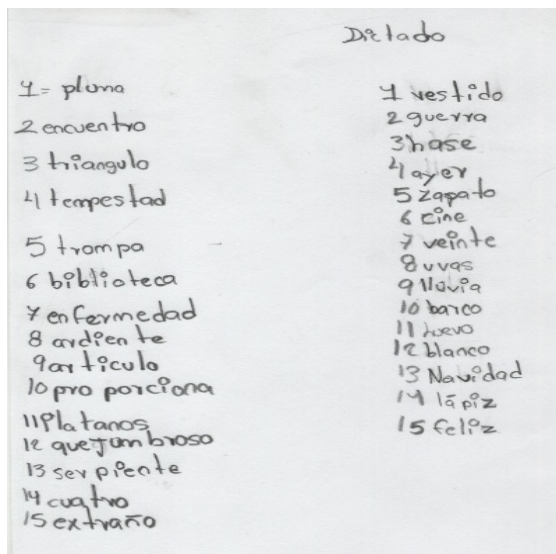 Dictado
1= pluma
2 encuentro
3 triangulo
4 tempestad
5 trompa
6 biblioteca
7 enfermedad
8 ardiente
9 articulo
10 pro porciona
11 Platanos
12 quejumbroso
13 ser piente
14 cuatro
15 extraño
1 vestido
2 guerra
3 hase
4 ayer
5 zapato
6 cine
7 veinte
8 uvas
9 lluvia
10 barco
11 huevo
12 blanco
13 Navidad
14 lápiz
15 feliz